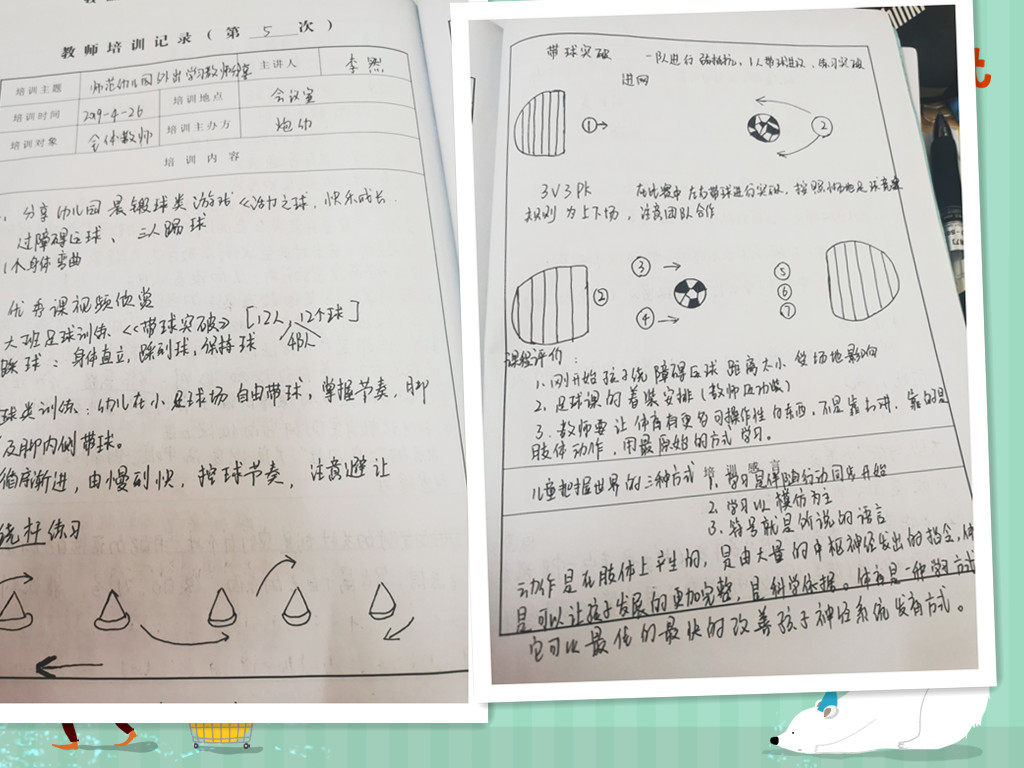 教师培训记录（第 5 次）
培训主题 师范幼儿园外出学习教师分享 主讲人 李
培训时间 2019-4-26 培训地点 会议室
培训对象 全体教师 培训主办方 炮幼
培训内容
分享幼儿园晨锻球类游戏《活力之球，快乐成长
过障碍运球、三人踢球
1个身体弯曲
优秀课视频欣赏
大班足球训练《带球突破》[12人，12个球]
踩球：身体直立，踩到球，保持球 48人
球类训练：幼儿在小足球场自由带球，掌握节奏，脚
及脚内侧带球。
循序渐进，由慢到快，控球节奏，注意避让
绕杆练习
带球突破 一队进行 1人带球进攻，练习突破
进网
①
②
3V3PK 在比赛中左右带球进行突破，按照 足球竞赛
规则为上下场，注意团队合作
③
⑤
②
⑥
④
⑦
课程评价：
1. 刚开始孩子绕障碍运球距离太小受场地影响
2. 足球课的着装安排（教师运动装）
3. 教师要让体育有更多可操作性的东西，不是靠 讲，靠的是
肢体动作，用最原始的方式学习。
培训感言
儿童把握世界的三种方式 1. 学习是伴随行动同步开始
2. 学习以模仿为主
3. 符号就是所说的语言
动作是在肢体上产生的，是由大量的中枢神经发出的指令，体
是可以让孩子发展的更加完整，是科学依据。体育是一种学习方式
它可以最优的最快的改善孩子神经系统发育方式。